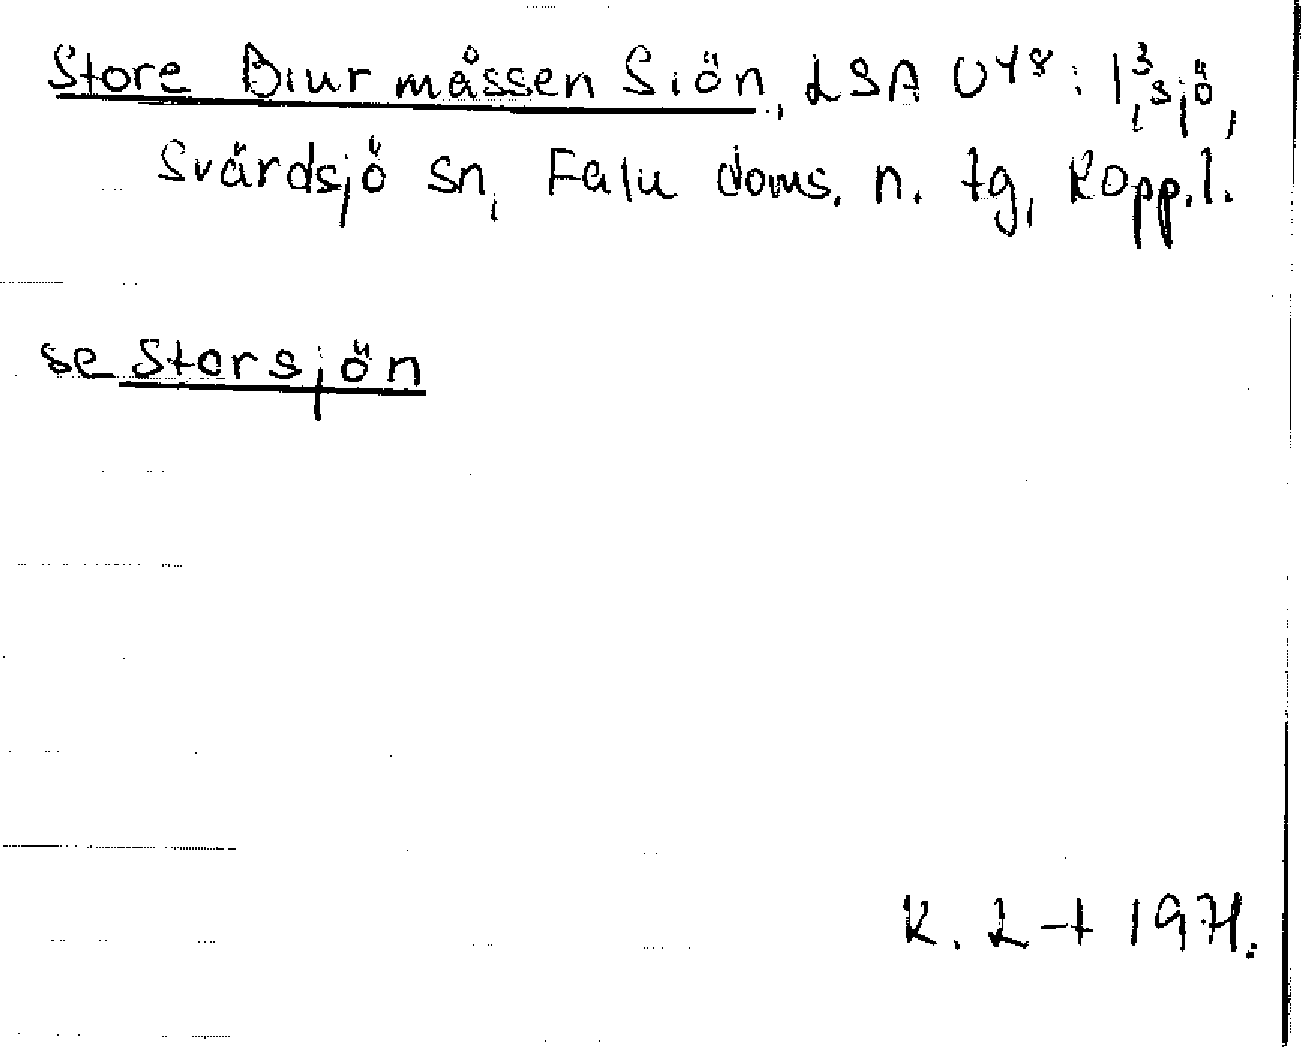 Store Biurmåssen Siön, LSA U48: 1³, sjö,
Svärdsjö sn, Falu doms. n. tg, Kopp. l.
se Storsjön
K. L-t 1971.